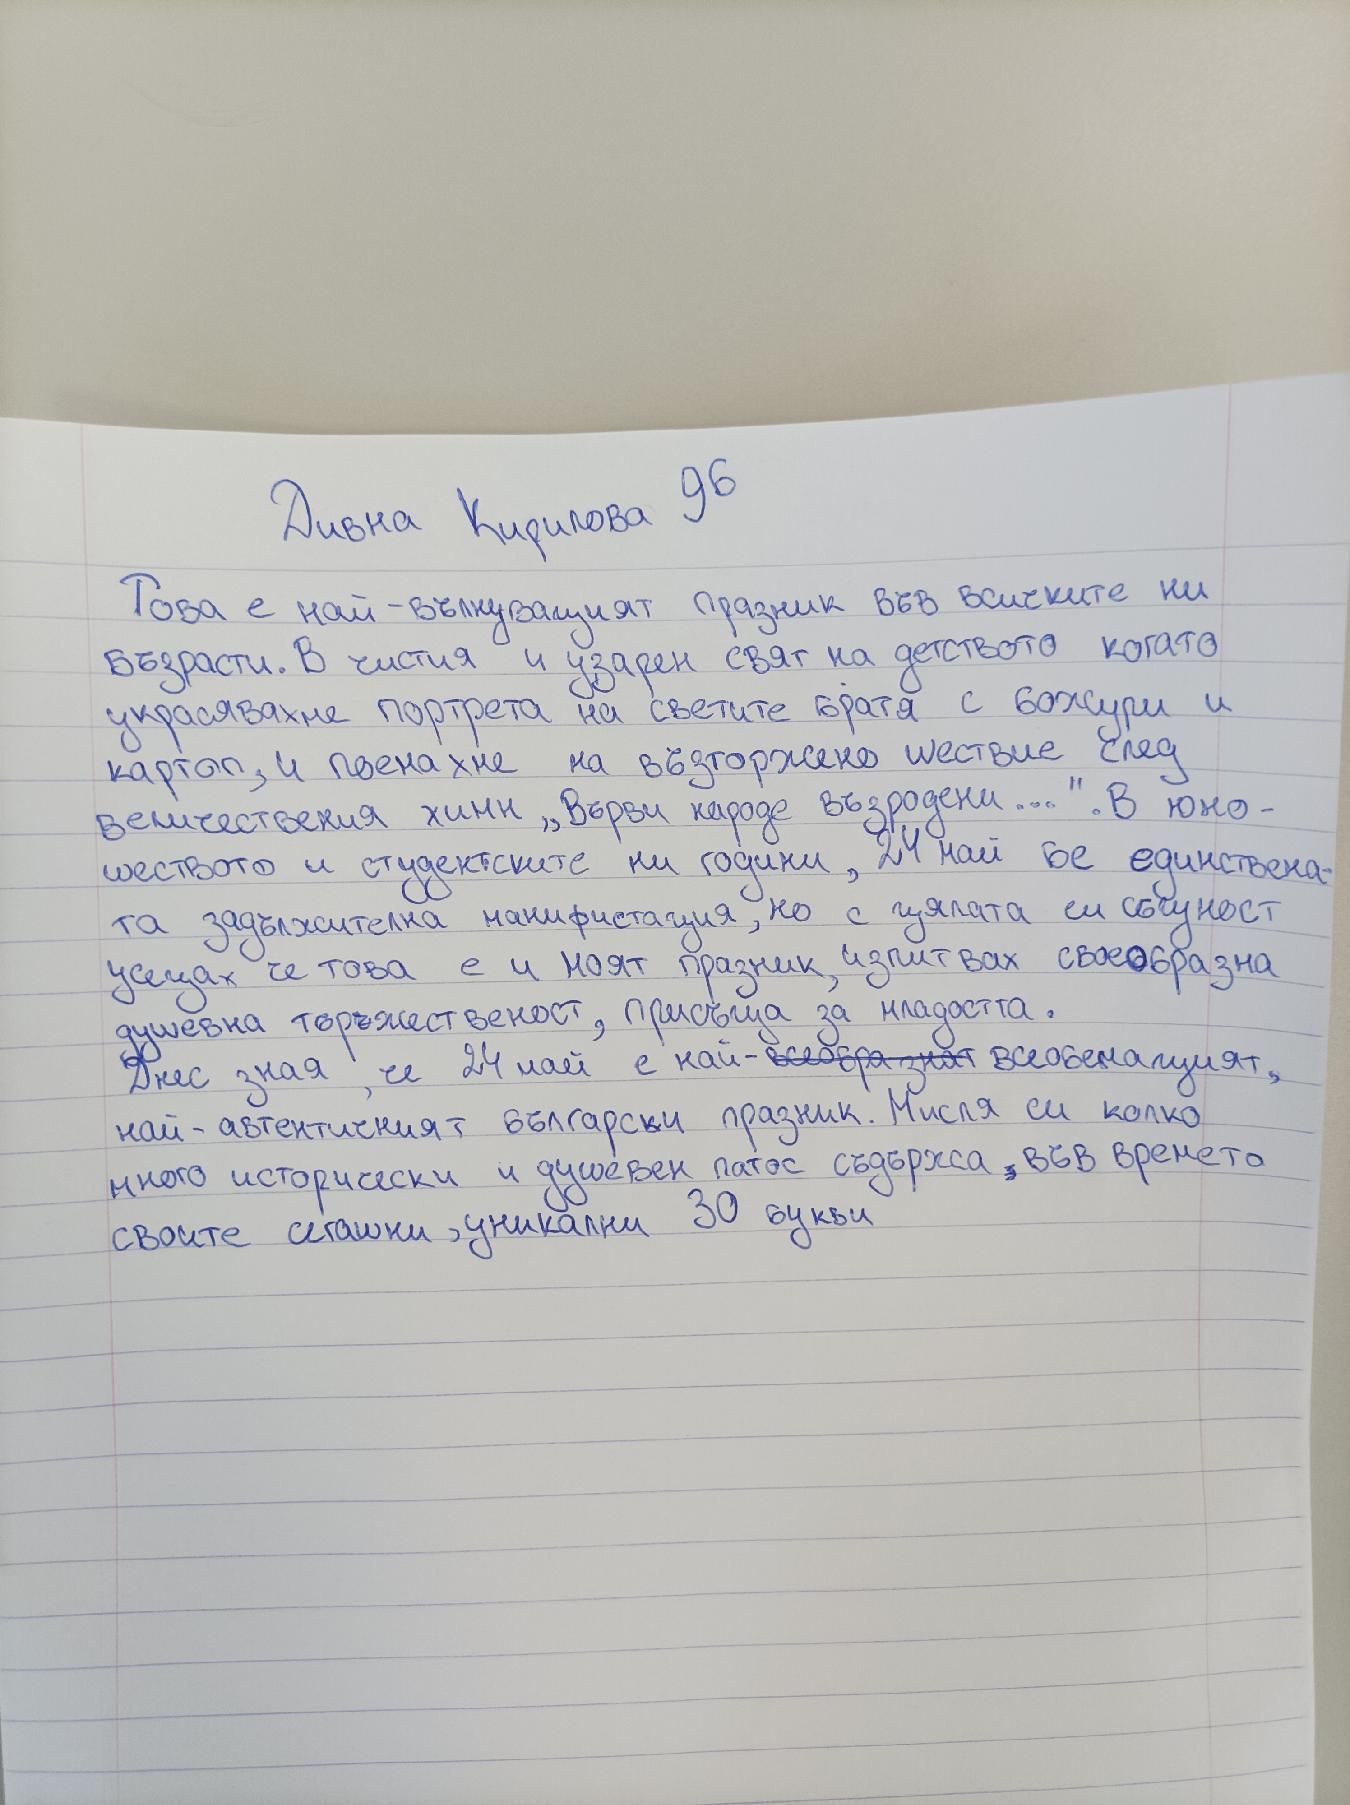 Дивна Кирилова 9б
Това е най-вълнуващият празник във всичките ни
възрасти. В чистия и узарен свят на детството когато
украсявахме портрета на светите братя с божури и
картоп, и поемахме на възторжено шествие след
величествения химн „Върви народе възродени...". В юно-
шеството и студентските ни години, 24 май бе единствена-
та задължителна манифистация, но с цялата си същност
усещах че това е и моят празник, изпитвах своеобразна
душевна търъжественост, присъща за младостта.
Днес зная, че 24 май е най-всеобемащият,
най-автентичният български празник. Мисля си колко
много исторически и душевен патос съдържа, във времето
своите сегашни, уникални 30 букви